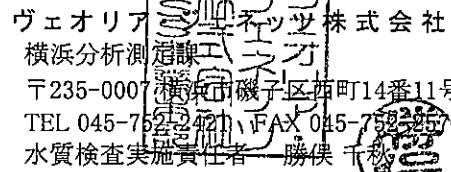 ヴェオリア・ジェネッツ株式会社
横浜分析測定課
〒235-0007 横浜市磯子区西町14番11号
TEL 045-752-2421 FAX 045-752-257
水質検査実施責任者 勝俣 千秋